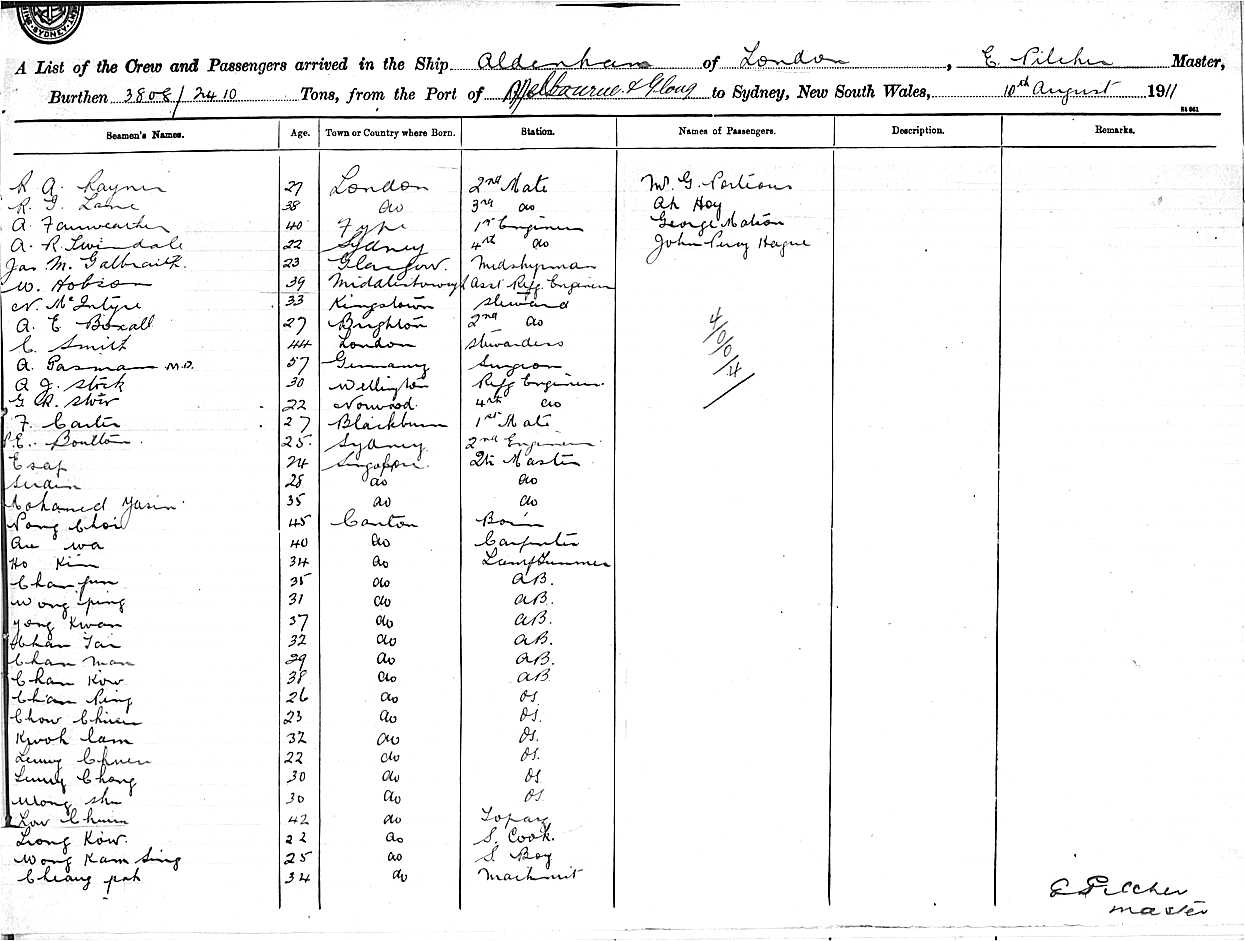 SYDNEY
A List of the Crew and Passengers arrived in the Ship Aldenham of London, E. Pilcher Master,
Burthen 3808/2410 Tons, from the Port of Melbourne & to Sydney, New South Wales, 10th August 1911
Seamen's Names. Age. Town or Country where Born. Station. Names of Passengers. Description. Remarks.
R A. Rayner 27 London 2nd Mate Mr. G. Porteous
R. G. Lane 38 do 3rd do Ah Hoy
A. Fairweather 40 Fyfe 1st Engineer George Matson
A. R. Twindale 22 Sydney 4th do John Percy Hague
Jas M. Galbraith. 23 Glasgow. Midshipman
W. Hobson 39 Asst Refg. Engineer
N. McIntyre 33 Kingstown Steward
A. E Boxall 27 Brighton 2nd do
C. Smith 44 London Stewardess
4/0/0/4
A. Pasman M.D. 57 Germany Surgeon
A J. Stock 30 Wellington Refg Engineer
G R. 22 Norwood 4th do
F. Carter 27 Blackburn 1st Mate
P.E. Boulton 25 Sydney 2nd Engineer
Esaf 24 Singapore Qtr Master
28 do do
Mohamed Yasin 35 do do
Choi 45 Canton Bosn
Au Wa 40 do Carpenter
Ho Kim 34 do Lamptrimmer
Chan fun 35 do AB.
Wong ping 31 do AB.
Yong Kwan 37 do AB.
Chan Tai 32 do AB.
Chan Man 29 do AB.
Chan Kow 38 do AB
Chan Ping 26 do OS.
Chow Chuen 23 do OS.
Kwok Cam 32 do OS.
Leung Chuen 22 do OS.
Leung Chong 30 do OS
Wong Shu 30 do OS
Low Chuen 42 do Topaz
Leong Kow. 22 do S. Cook.
Wong Kam Sing 25 do S Boy
Cheang pak 34 do Machinist
E Pilcher
Master